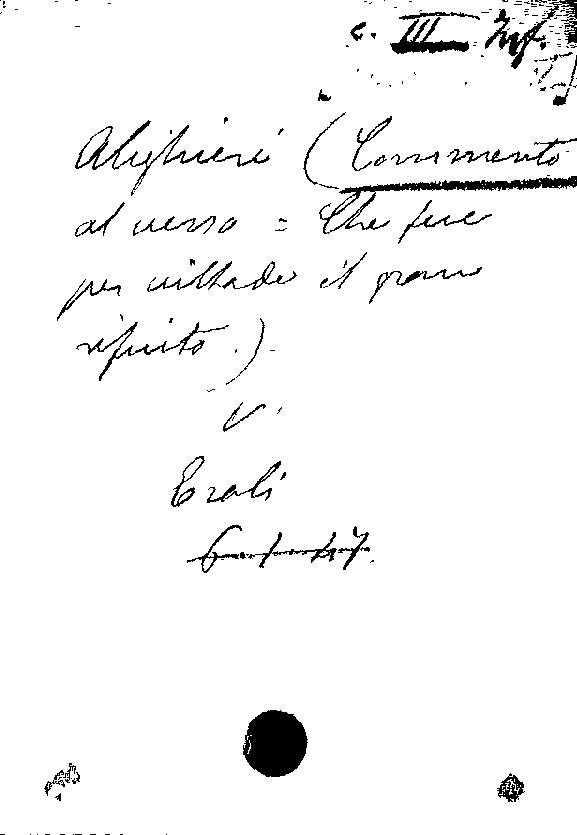 c. III Inf.
Alighieri (Commento
al verso = Che fece
per viltade il gran
rifiuto.)
V.
Eroli